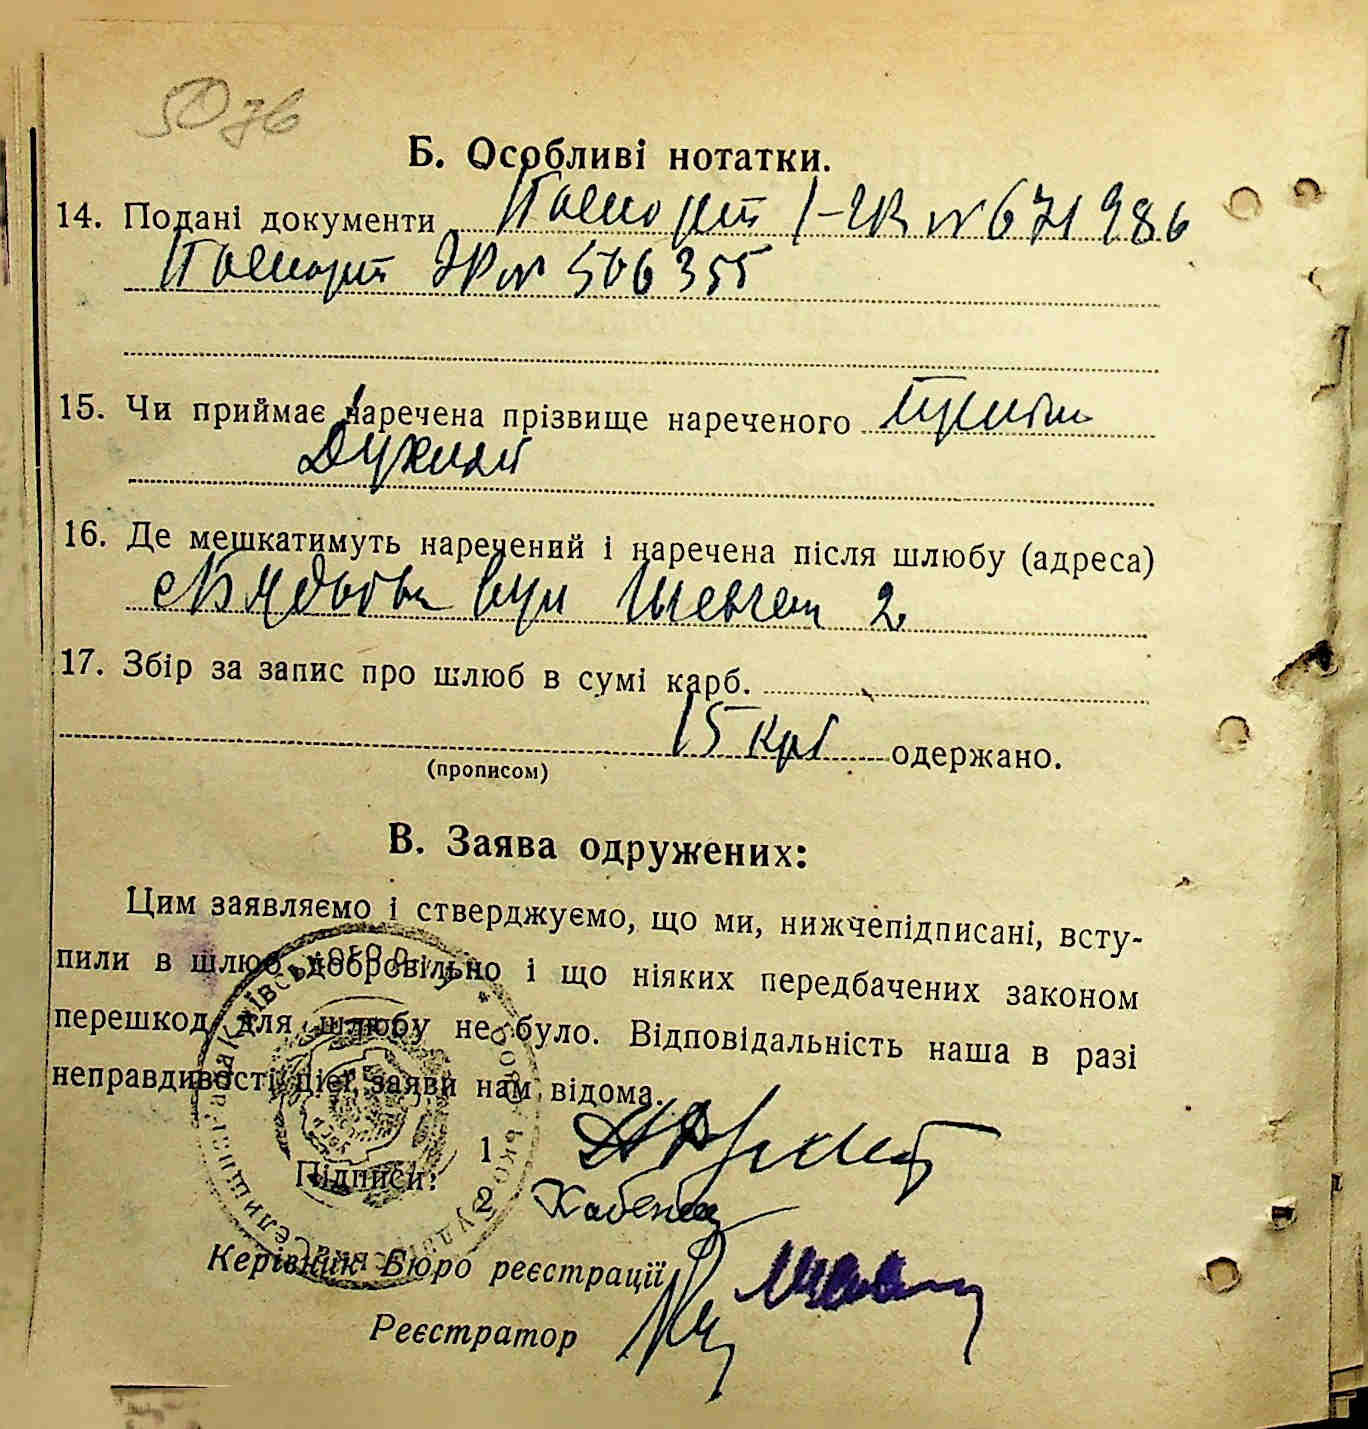 Б. Особливі нотатки.
14. Подані документи Паспорт №671986
Паспорт № 506355
15. Чи приймає наречена прізвище нареченого приймає
16. Де мешкатимуть наречений і наречена після шлюбу (адреса)
вул Шевчен 2
17. Збір за запис про шлюб в сумі карб.
15 крб одержано.
(прописом)
В. Заява одружених:
Цим заявляємо і стверджуємо, що ми, нижчепідписані, всту-
пили в шлюб добровільно і що ніяких передбачених законом
перешкод для шлюбу не було. Відповідальність наша в разі
неправдивості цієї заяви нам відома.
Підписи:
1
2
Керівник Бюро реєстрації
Реєстратор